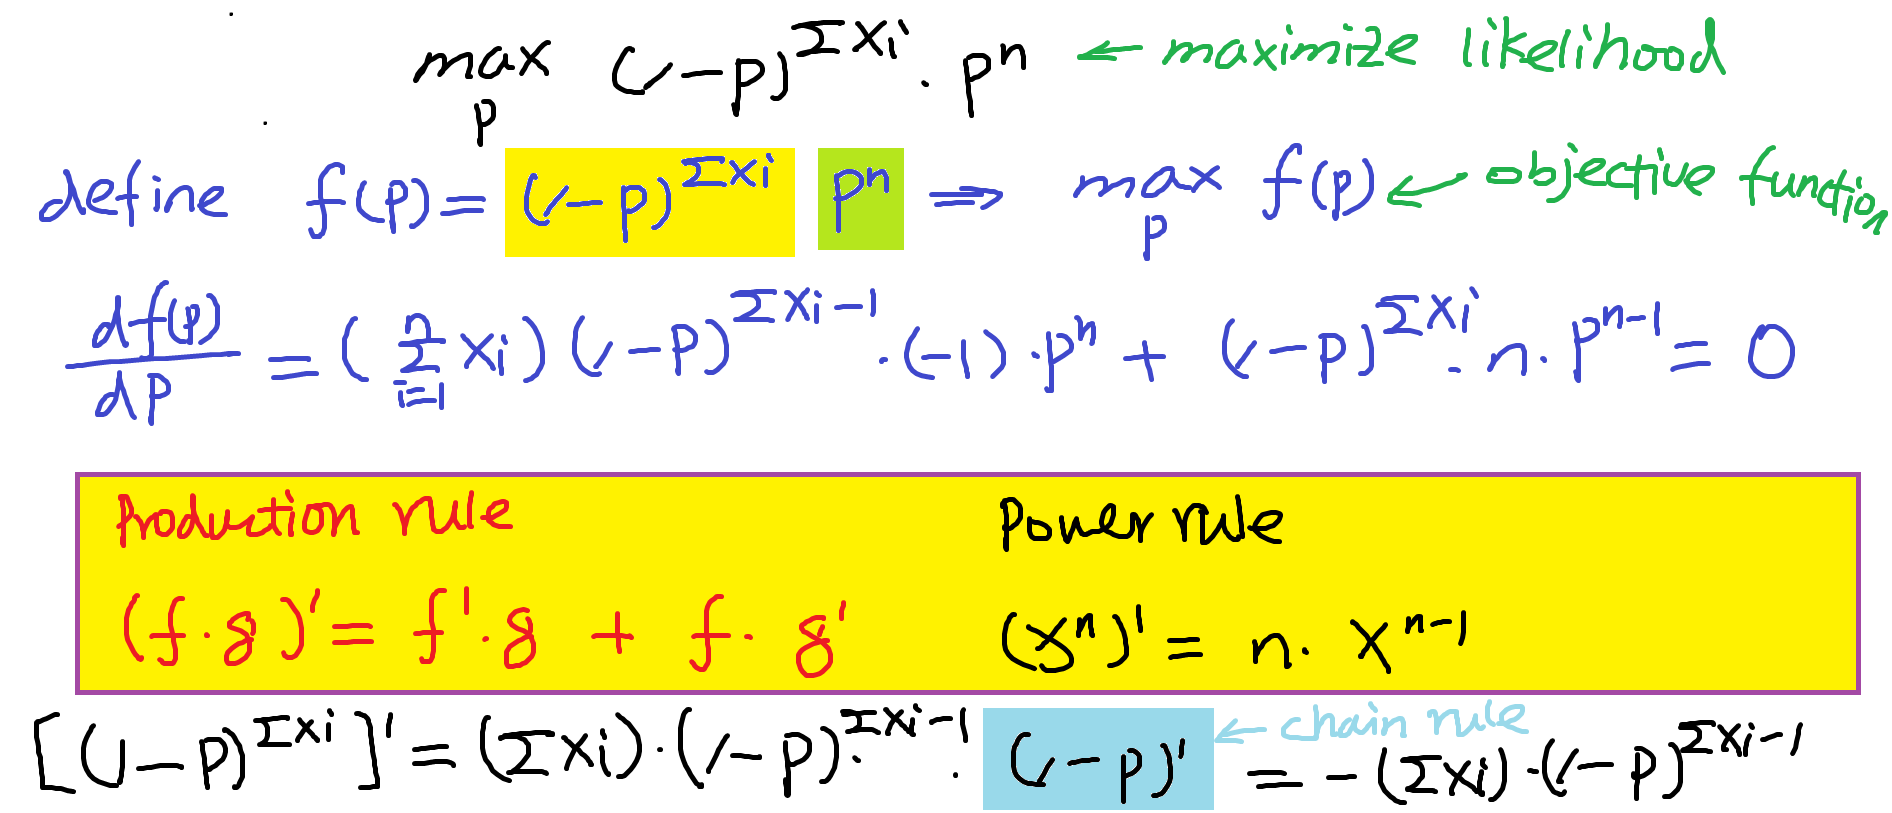 max_p (1-p)^{Σxi} · p^n ← maximize likelihood
define f(p) = (1-p)^{Σxi} p^n ⇒ max_p f(p) ← objective function
df(p)/dp = (Σ_{i=1}^{n} xi) (1-p)^{Σxi-1} · (-1) · p^n + (1-p)^{Σxi} · n · p^{n-1} = 0
Production rule Power rule
(f·g)' = f'·g + f·g' (x^n)' = n · x^{n-1}
[(1-p)^{Σxi}]' = (Σxi) · (1-p)^{Σxi-1} · (1-p)' ← chain rule = -(Σxi) · (1-p)^{Σxi-1}